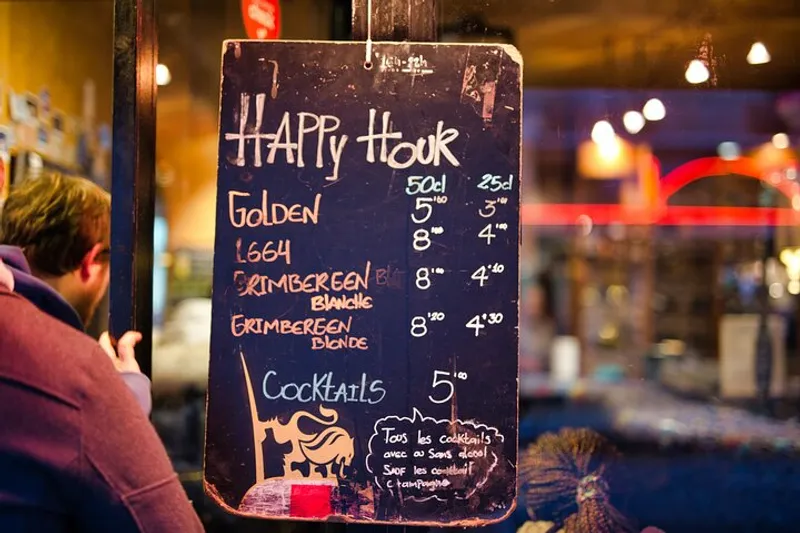 16h-22h
HAPPY HOUR
50cl 25cl
GOLDEN 5'00 3'00
1664 8'00 4'00
GRIMBERGEEN BLANCHE 8'00 4'10
GRIMBERGEEN BLONDE 8'20 4'30
COCKTAILS 5'00
Tous les cocktails
avec ou sans alcool
SAUF les cocktail
champagne